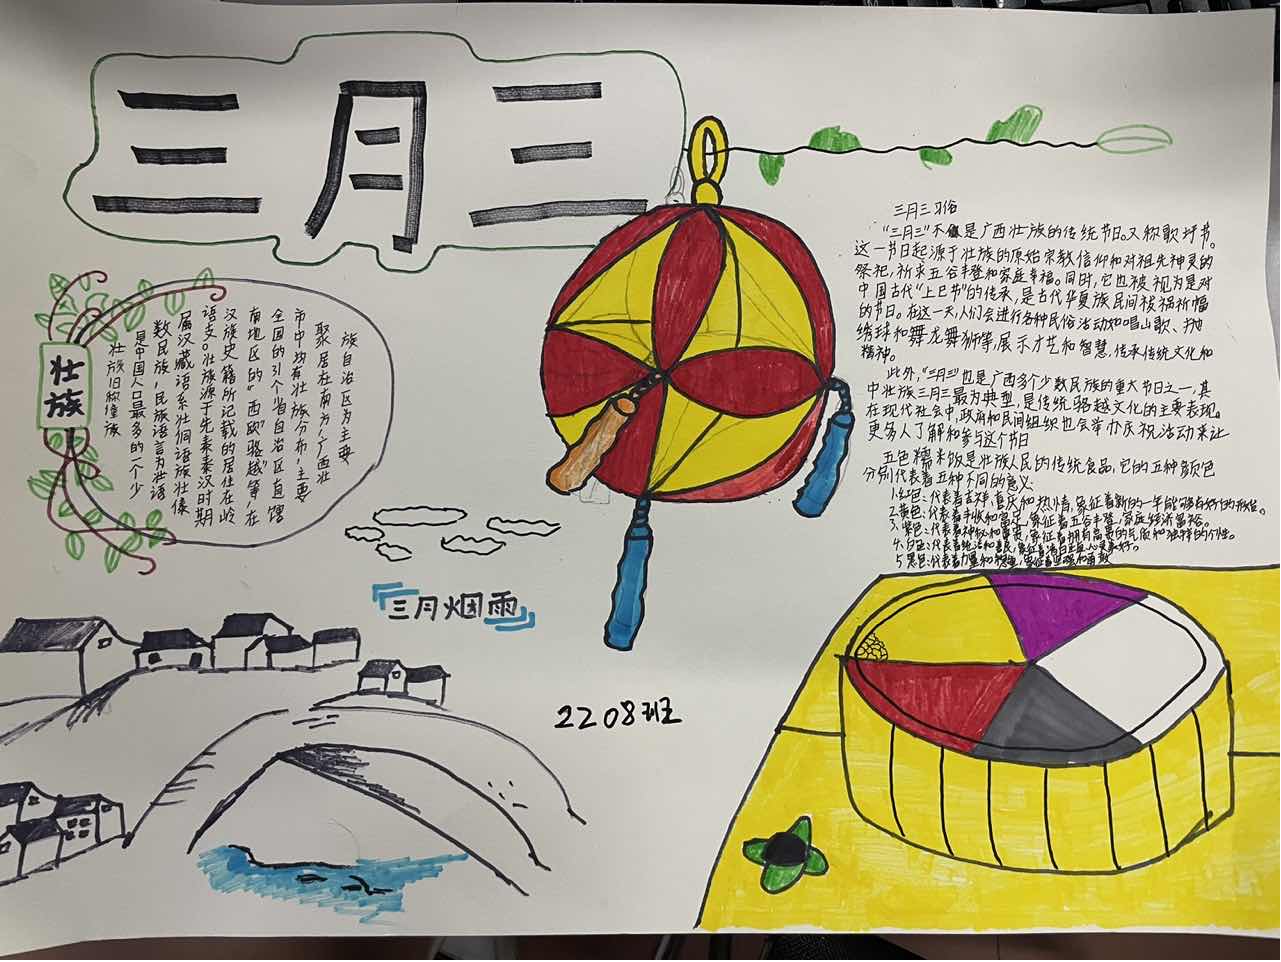 三月三
壮族
族自治区为主要
聚居在南方,广西壮
市中均有壮族分布,主要
全国的31个省自治区直辖
南地区的"西欧""骆越"等,在
汉族史籍所记载的居住在岭
语支。壮族源于先秦秦汉时期
属汉藏语系壮侗语族壮傣
数民族,民族语言为壮语
是中国人口最多的一个少
壮族旧称僮族
三月三习俗
"三月三"不仅是广西壮族的传统节日。又称歌圩节。
这一节日起源于壮族的原始宗教信仰和对祖先神灵的
祭祀,祈求五谷丰登和家庭幸福。同时,它也被视为是对
中国古代"上巳节"的传承,是古代华夏族民间祓祸祈福
的节日。在这一天,人们会进行各种民俗活动如唱山歌、抛
绣球和舞龙舞狮等,展示才艺和智慧,传承传统文化和
精神。
此外,"三月三"也是广西多个少数民族的重大节日之一,其
中壮族三月三最为典型,是传统骆越文化的主要表现。
在现代社会中,政府和民间组织也会举办庆祝活动来让
更多人了解和参与这个节日
五色糯米饭是壮族人民的传统食品,它的五种颜色
分别代表着五种不同的意义:
1.红色:代表着吉祥,喜庆和热情,象征着新的一年能够有好的开始。
2.黄色:代表着丰收和富足,象征着五谷丰登,家庭经济富裕。
3.紫色:代表着神秘和高贵,象征着拥有高贵的气质和独特的个性。
4.白色:代表着纯洁和善良,象征着
5.黑色:代表着力量和稳重,象征着坚强和勇敢
三月烟雨
2208班